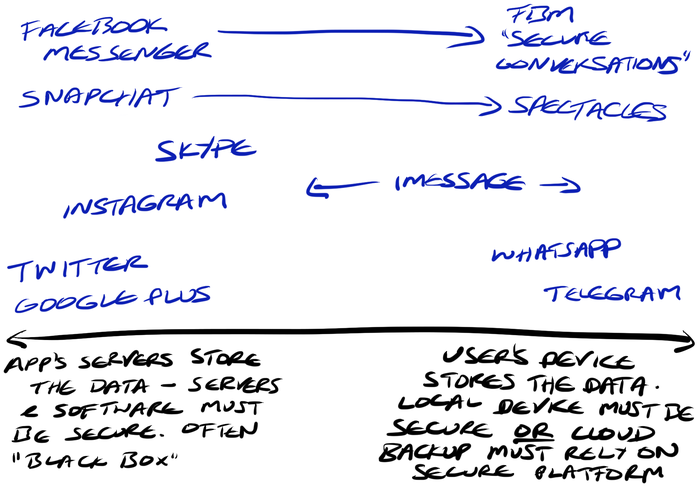 FACEBOOK
MESSENGER
FBM
"SECURE
CONVERSATIONS"
SNAPCHAT
SPECTACLES
SKYPE
IMESSAGE
INSTAGRAM
WHATSAPP
TWITTER
TELEGRAM
GOOGLE PLUS
APP'S SERVERS STORE
THE DATA - SERVERS
& SOFTWARE MUST
BE SECURE. OFTEN
"BLACK BOX"
USER'S DEVICE
STORES THE DATA.
LOCAL DEVICE MUST BE
SECURE OR CLOUD
BACKUP MUST RELY ON
SECURE PLATFORM